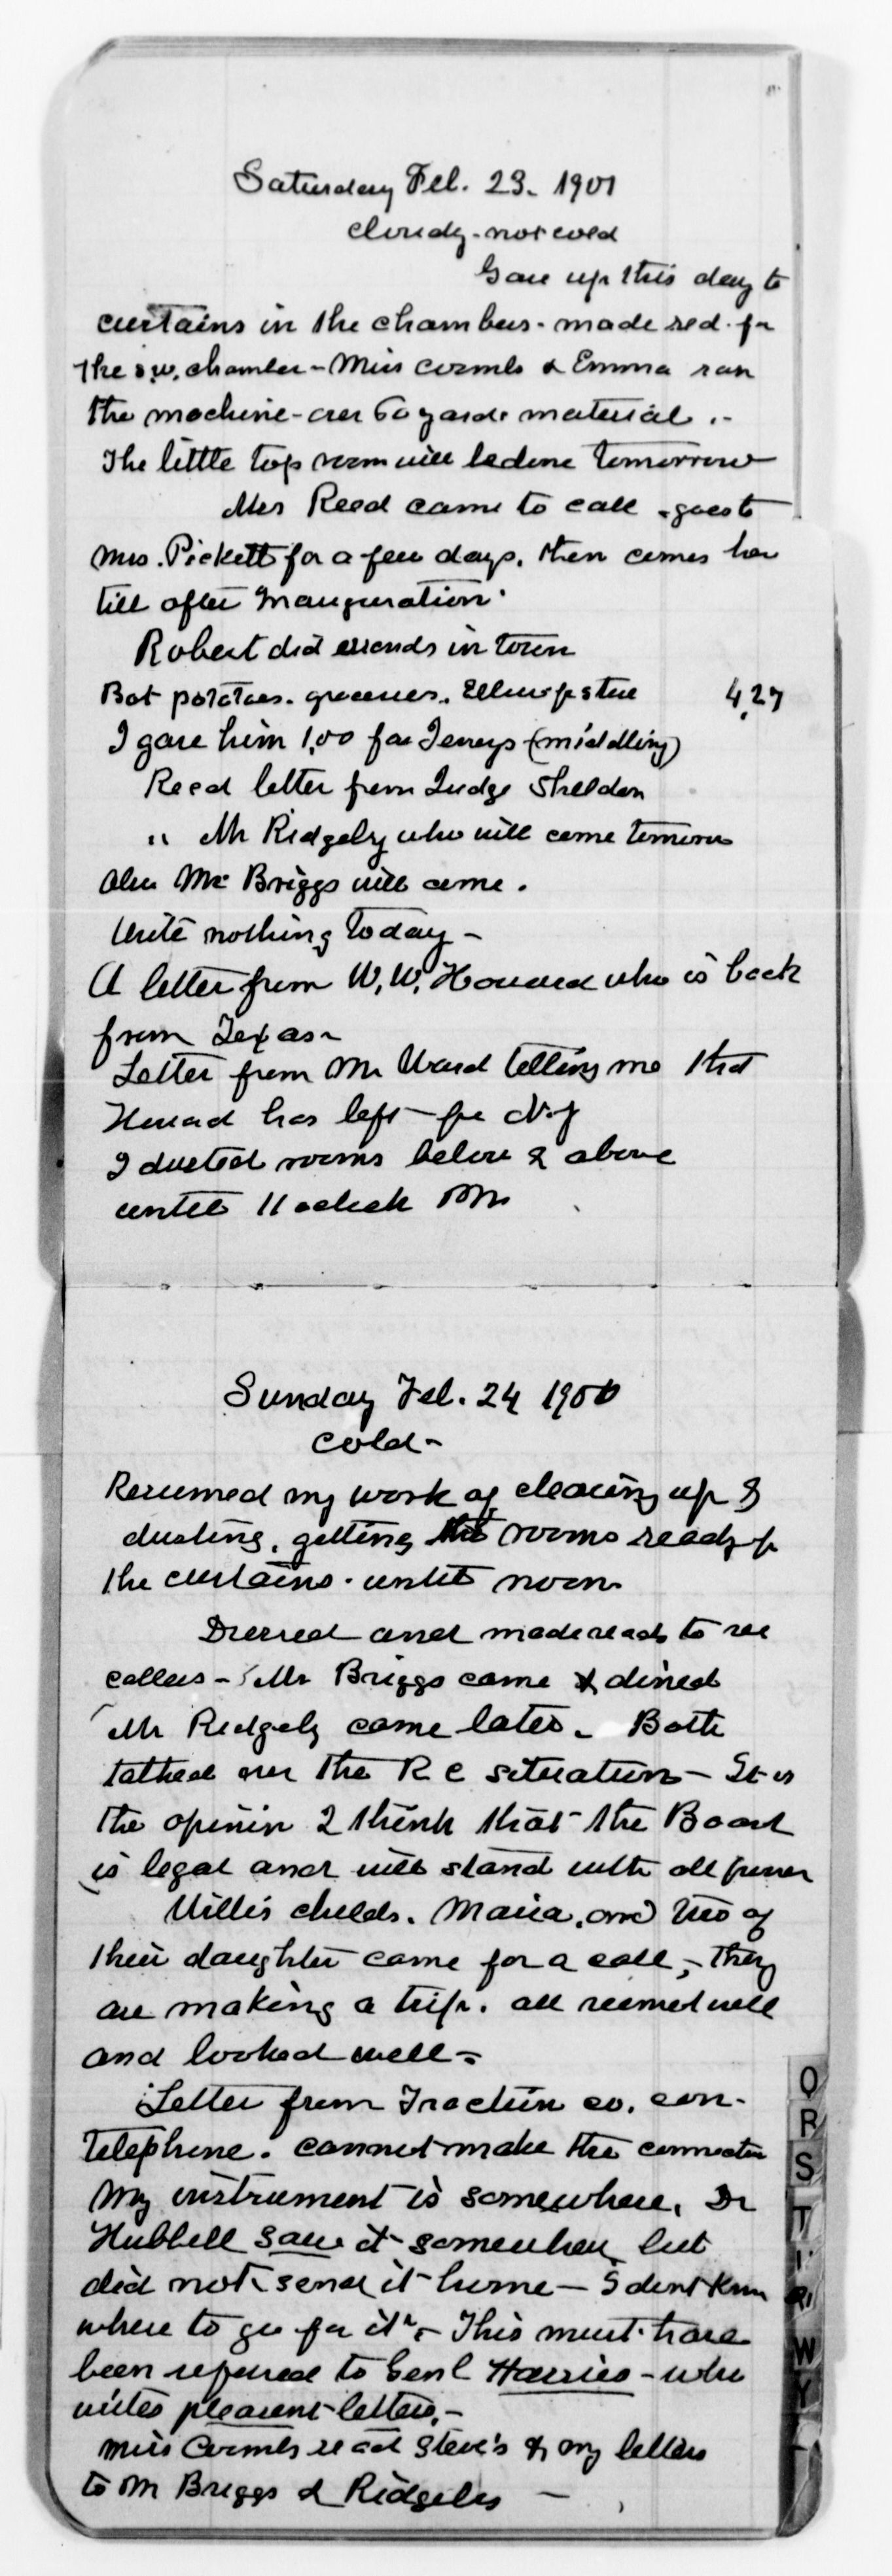 Saturday Feb. 23. 1901
cloudy - not cold
Gave up this day to
curtains in the chambers - made red for
the s.w. chamber - Miss Coombs & Emma ran
the machine - over 60 yards material. -
The little top room will be done tomorrow
Mrs Reed came to call - goes to
Mrs. Pickett for a few days, then comes here
till after Inauguration.
Robert did errands in town
Bot potatoes. groceries. 4,27
I gave him 1,00 for Jerseys (middling)
Recd letter from Judge Sheldon
" Mr Ridgely who will come tomorrow
Also Mr Briggs will come.
Write nothing today -
A letter from W. W. Howard who is back
from Texas -
Letter from Mr Ward telling me that
Howard has left for N.Y
I dusted rooms below & above
until 11 oclock PM
Sunday Feb. 24 1900
cold -
Resumed my work of clearing up &
dusting, getting the rooms ready for
the curtains - until noon
Dressed and made ready to see
callers - Mr Briggs came & dined
Mr Ridgely came later - Both
talked over the R C situation - It is
the opinion I think that the Board
is legal and will stand with all power
Willis Childs. Maria, and two of
their daughter came for a call, - they
are making a trip. all seemed well
and looked well -
Letter from Traction co. con-
telephone. cannot make the connection
My instrument is somewhere, Dr
Hubbell saw it somewhere, but
did not send it home - I dont know
where to go for it - This must have
been referred to Genl Harries - who
writes pleasent letters, -
Miss Coombs read Steve's & my letters
to Mr Briggs & Ridgely -
Q
R
S
T
W
Y